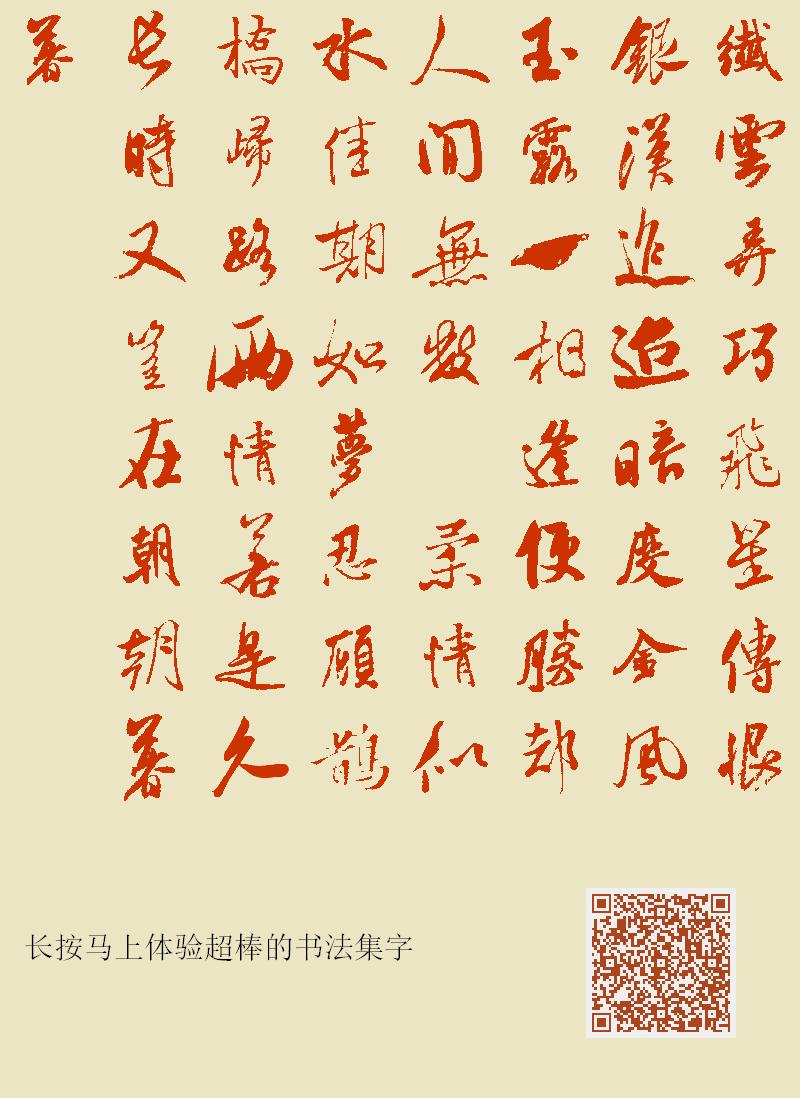 纖雲弄巧飛星傳恨
銀漢迢迢暗度金風
玉露一相逢便勝却
人間無數 柔情似
水佳期如夢忍顧鵲
橋歸路兩情若是久
長時又豈在朝朝暮
暮
长按马上体验超棒的书法集字